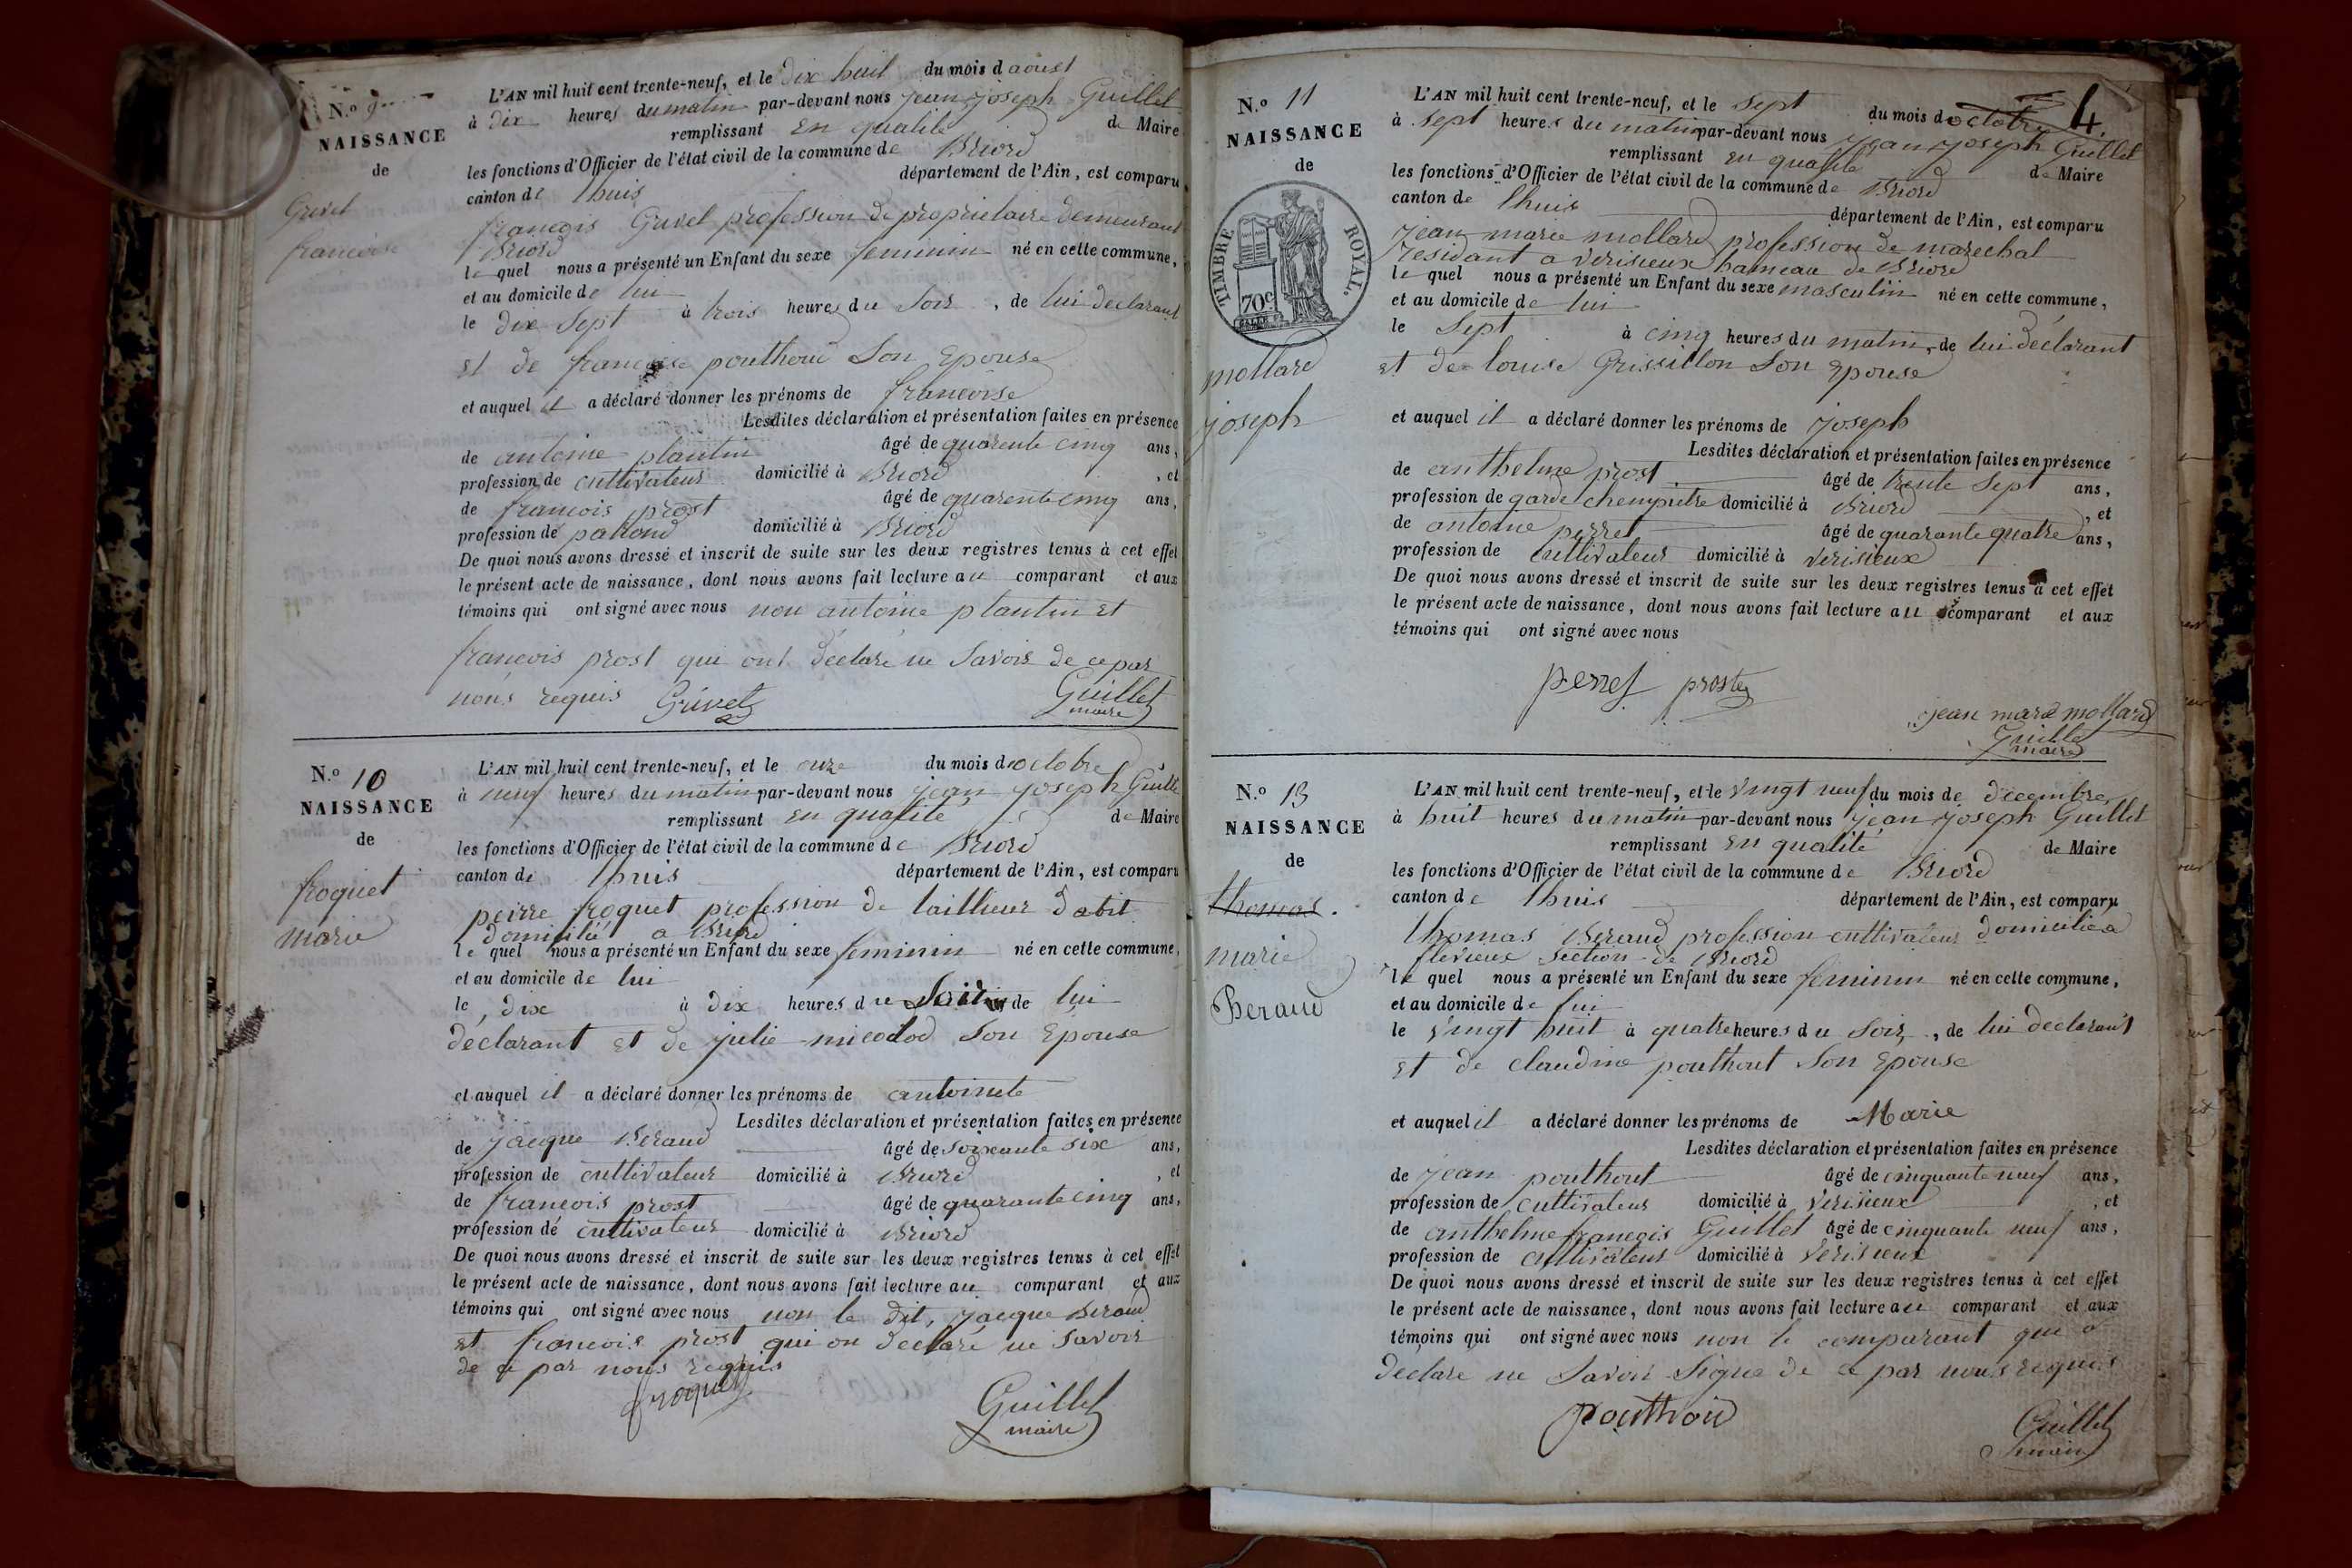 N.o 9
NAISSANCE
de
Grivet
francoise
L'AN mil huit cent trente-neuf, et le dix huit du mois d aoust
à dix heures du matin par-devant nous jean joseph Guillet
remplissant en qualité de Maire
les fonctions d'Officier de l'état civil de la commune de Briord
canton de lhuis département de l'Ain, est comparu
françois Grivet profession de proprietaire demeurant
Briord
le quel nous a présenté un Enfant du sexe feminin né en cette commune,
et au domicile de lui
le dix sept à trois heures du soir, de lui declarant
et de francoise pouthoud son epouse
et auquel il a déclaré donner les prénoms de francoise
Lesdites déclaration et présentation faites en présence
de antoine plantin âgé de quarente cinq ans,
profession de cultivateur domicilié à Briord, et
de francois prost âgé de quarente cinq ans,
profession de domicilié à Briord
De quoi nous avons dressé et inscrit de suite sur les deux registres tenus à cet effet
le présent acte de naissance, dont nous avons fait lecture au comparant et aux
témoins qui ont signé avec nous non antoine plantin et
francois prost qui ont déclaré ne savoir de ce par
nous requis Grivet Guillet
maire
N.o 10
NAISSANCE
de
froquet
marie
L'AN mil huit cent trente-neuf, et le onze du mois d'octobre
à neuf heures du matin par-devant nous jean joseph Guillet
remplissant en qualité de Maire
les fonctions d'Officier de l'état civil de la commune de Briord
canton de lhuis département de l'Ain, est comparu
peirre froquet profession de taillieur dabit
domicilié a Briord
le quel nous a présenté un Enfant du sexe feminin né en cette commune,
et au domicile de lui
le dix à dix heures du soir de lui
déclarant et de julie micolod son épouse
et auquel il a déclaré donner les prénoms de antoinete
Lesdites déclaration et présentation faites en présence
de jacque Beraud âgé de soixante six ans,
profession de cultivateur domicilié à Briord, et
de francois prost âgé de quarante cinq ans,
profession de cultivateur domicilié à Briord
De quoi nous avons dressé et inscrit de suite sur les deux registres tenus à cet effet
le présent acte de naissance, dont nous avons fait lecture au comparant et aux
témoins qui ont signé avec nous non le dit, jacque Beraud
et francois prost qui on declaré ne savoir
de ce par nous requis
froquet
Guillet
maire
4
N.o 11
NAISSANCE
de
TIMBRE ROYAL.
70c
mollard
joseph
L'AN mil huit cent trente-neuf, et le sept du mois d octobre
à sept heures du matin par-devant nous jean joseph Guillet
remplissant en qualité de Maire
les fonctions d'Officier de l'état civil de la commune de Briord
canton de lhuis département de l'Ain, est comparu
jean marie mollard profession de marechal
residant a verisieux hameau de Briord
le quel nous a présenté un Enfant du sexe masculin né en cette commune,
et au domicile de lui
le sept à cinq heures du matin, de lui déclarant
et de louise Grissillon son epouse
et auquel il a déclaré donner les prénoms de joseph
Lesdites déclaration et présentation faites en présence
de anthelme prost âgé de trente sept ans,
profession de garde chempietre domicilié à Briord, et
de antoine perret âgé de quarante quatre ans,
profession de cultivateur domicilié à verisieux
De quoi nous avons dressé et inscrit de suite sur les deux registres tenus à cet effet
le présent acte de naissance, dont nous avons fait lecture au comparant et aux
témoins qui ont signé avec nous
perret prost
jean marie mollard
Guillet
maire
N.o 13
NAISSANCE
de
thomas.
marie
Beraud
L'AN mil huit cent trente-neuf, et le vingt neuf du mois de décembre
à huit heures du matin par-devant nous jean joseph Guillet
remplissant en qualité de Maire
les fonctions d'Officier de l'état civil de la commune de Briord
canton de lhuis département de l'Ain, est comparu
thomas Beraud profession cultivateur domicilié a
flevieux section de Briord
le quel nous a présenté un Enfant du sexe feminin né en cette commune,
et au domicile de lui
le vingt huit à quatre heures du soir, de lui declarant
et de claudine pouthout son epouse
et auquel il a déclaré donner les prénoms de Marie
Lesdites déclaration et présentation faites en présence
de jean pouthout âgé de cinquante neuf ans,
profession de cultivateur domicilié à verisieux, et
de anthelme françois Guillet âgé de cinquante neuf ans,
profession de cultivateur domicilié à verisieux
De quoi nous avons dressé et inscrit de suite sur les deux registres tenus à cet effet
le présent acte de naissance, dont nous avons fait lecture au comparant et aux
témoins qui ont signé avec nous non le comparant qui a
declare ne savoir signé de ce par nous requis
pouthoud
Guillet
maire